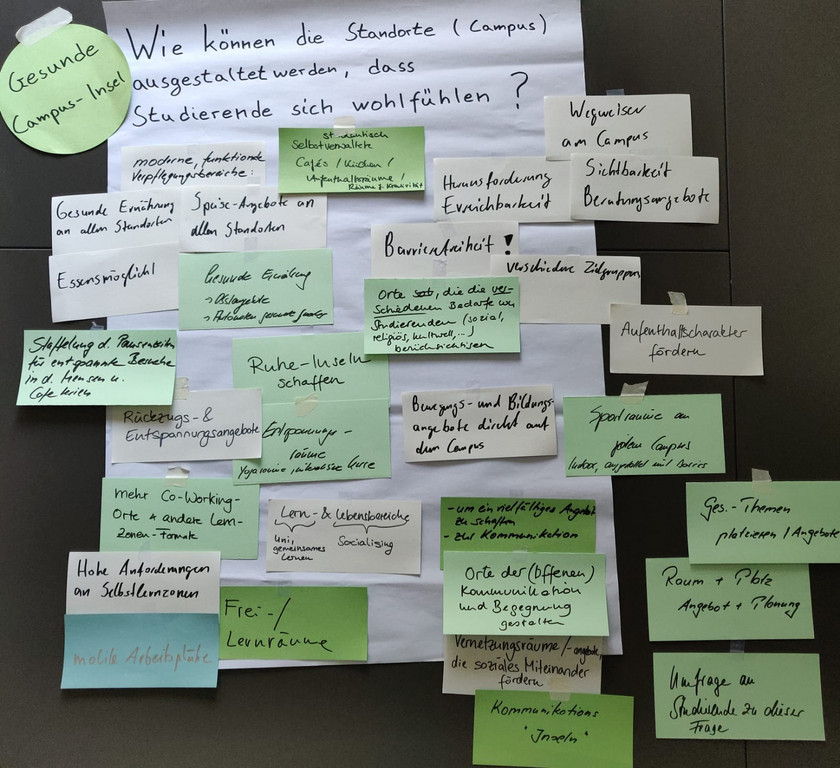 Gesunde
Campus-Insel
Wie können die Standorte (Campus)
ausgestaltet werden, dass
Studierende sich wohlfühlen?
Wegweiser
am Campus
Selbstverwaltete
Cafés / Küchen /
Aufenthaltsräume /
Räume z. Kreativität
moderne, funktionale
Verpflegungsbereiche:
Herausforderung
Erreichbarkeit
Sichtbarkeit
Beratungsangebote
Gesunde Ernährung
an allen Standorten
Speise-Angebote an
allen Standorten
Barrierefreiheit!
verschiedene Zielgruppen
Essensmöglichk
Gesunde Ernährung
→ Obstangebote
→ Automaten gesunde
Orte, die die ver-
schiedenen Bedarfe von
Studierenden (sozial,
religiös, kulturell, ...)
berücksichtigen
Aufenthaltscharakter
fördern
Staffelung d. Pausenzeiten
für entspannte Besuche
in d. Mensen u.
Cafeterien
Ruhe-Inseln
schaffen
Rückzugs- &
Entspannungsangebote
Entspannungs-
räume
Yogaräume, interaktive Kurse
Bewegungs- und Bildungs-
angebote direkt auf
dem Campus
Sporträume an
jedem Campus
Indoor, ausgestattet mit
mehr Co-Working-
Orte + andere Lern-
Zonen-Formate
Lern- & Lebensbereiche
Uni,
gemeinsames
Lernen
Socialising
- um ein vielfältiges Angebot
zu schaffen
- zur Kommunikation
Ges.-Themen
platzieren / Angebote
Hohe Anforderungen
an Selbstlernzonen
Orte der (offenen)
Kommunikation
und Begegnung
gestalten
Raum + Platz
Angebot + Planung
Frei-/
Lernräume
mobile Arbeitsplätze
Vernetzungsräume/-angebote,
die soziales Miteinander
fördern
Umfrage an
Studierende zu dieser
Frage
Kommunikations
"Inseln"